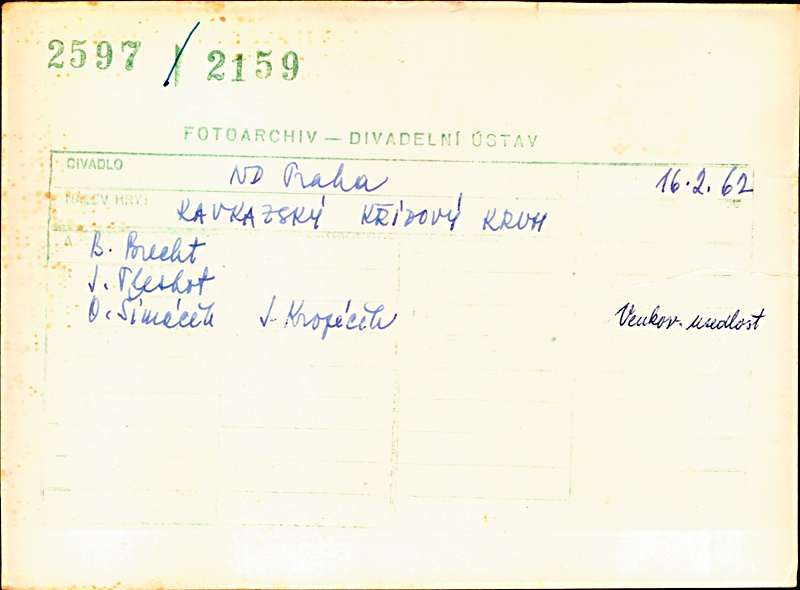 2597 / 2159
FOTOARCHIV — DIVADELNÍ ÚSTAV
DIVADLO ND Praha 16.2.62
NÁZEV HRY: KAVKAZSKÝ KŘÍDOVÝ KRUH
B. Brecht
J. Pleskot
O. Šimáček J. Kropáček Venkov. usedlost